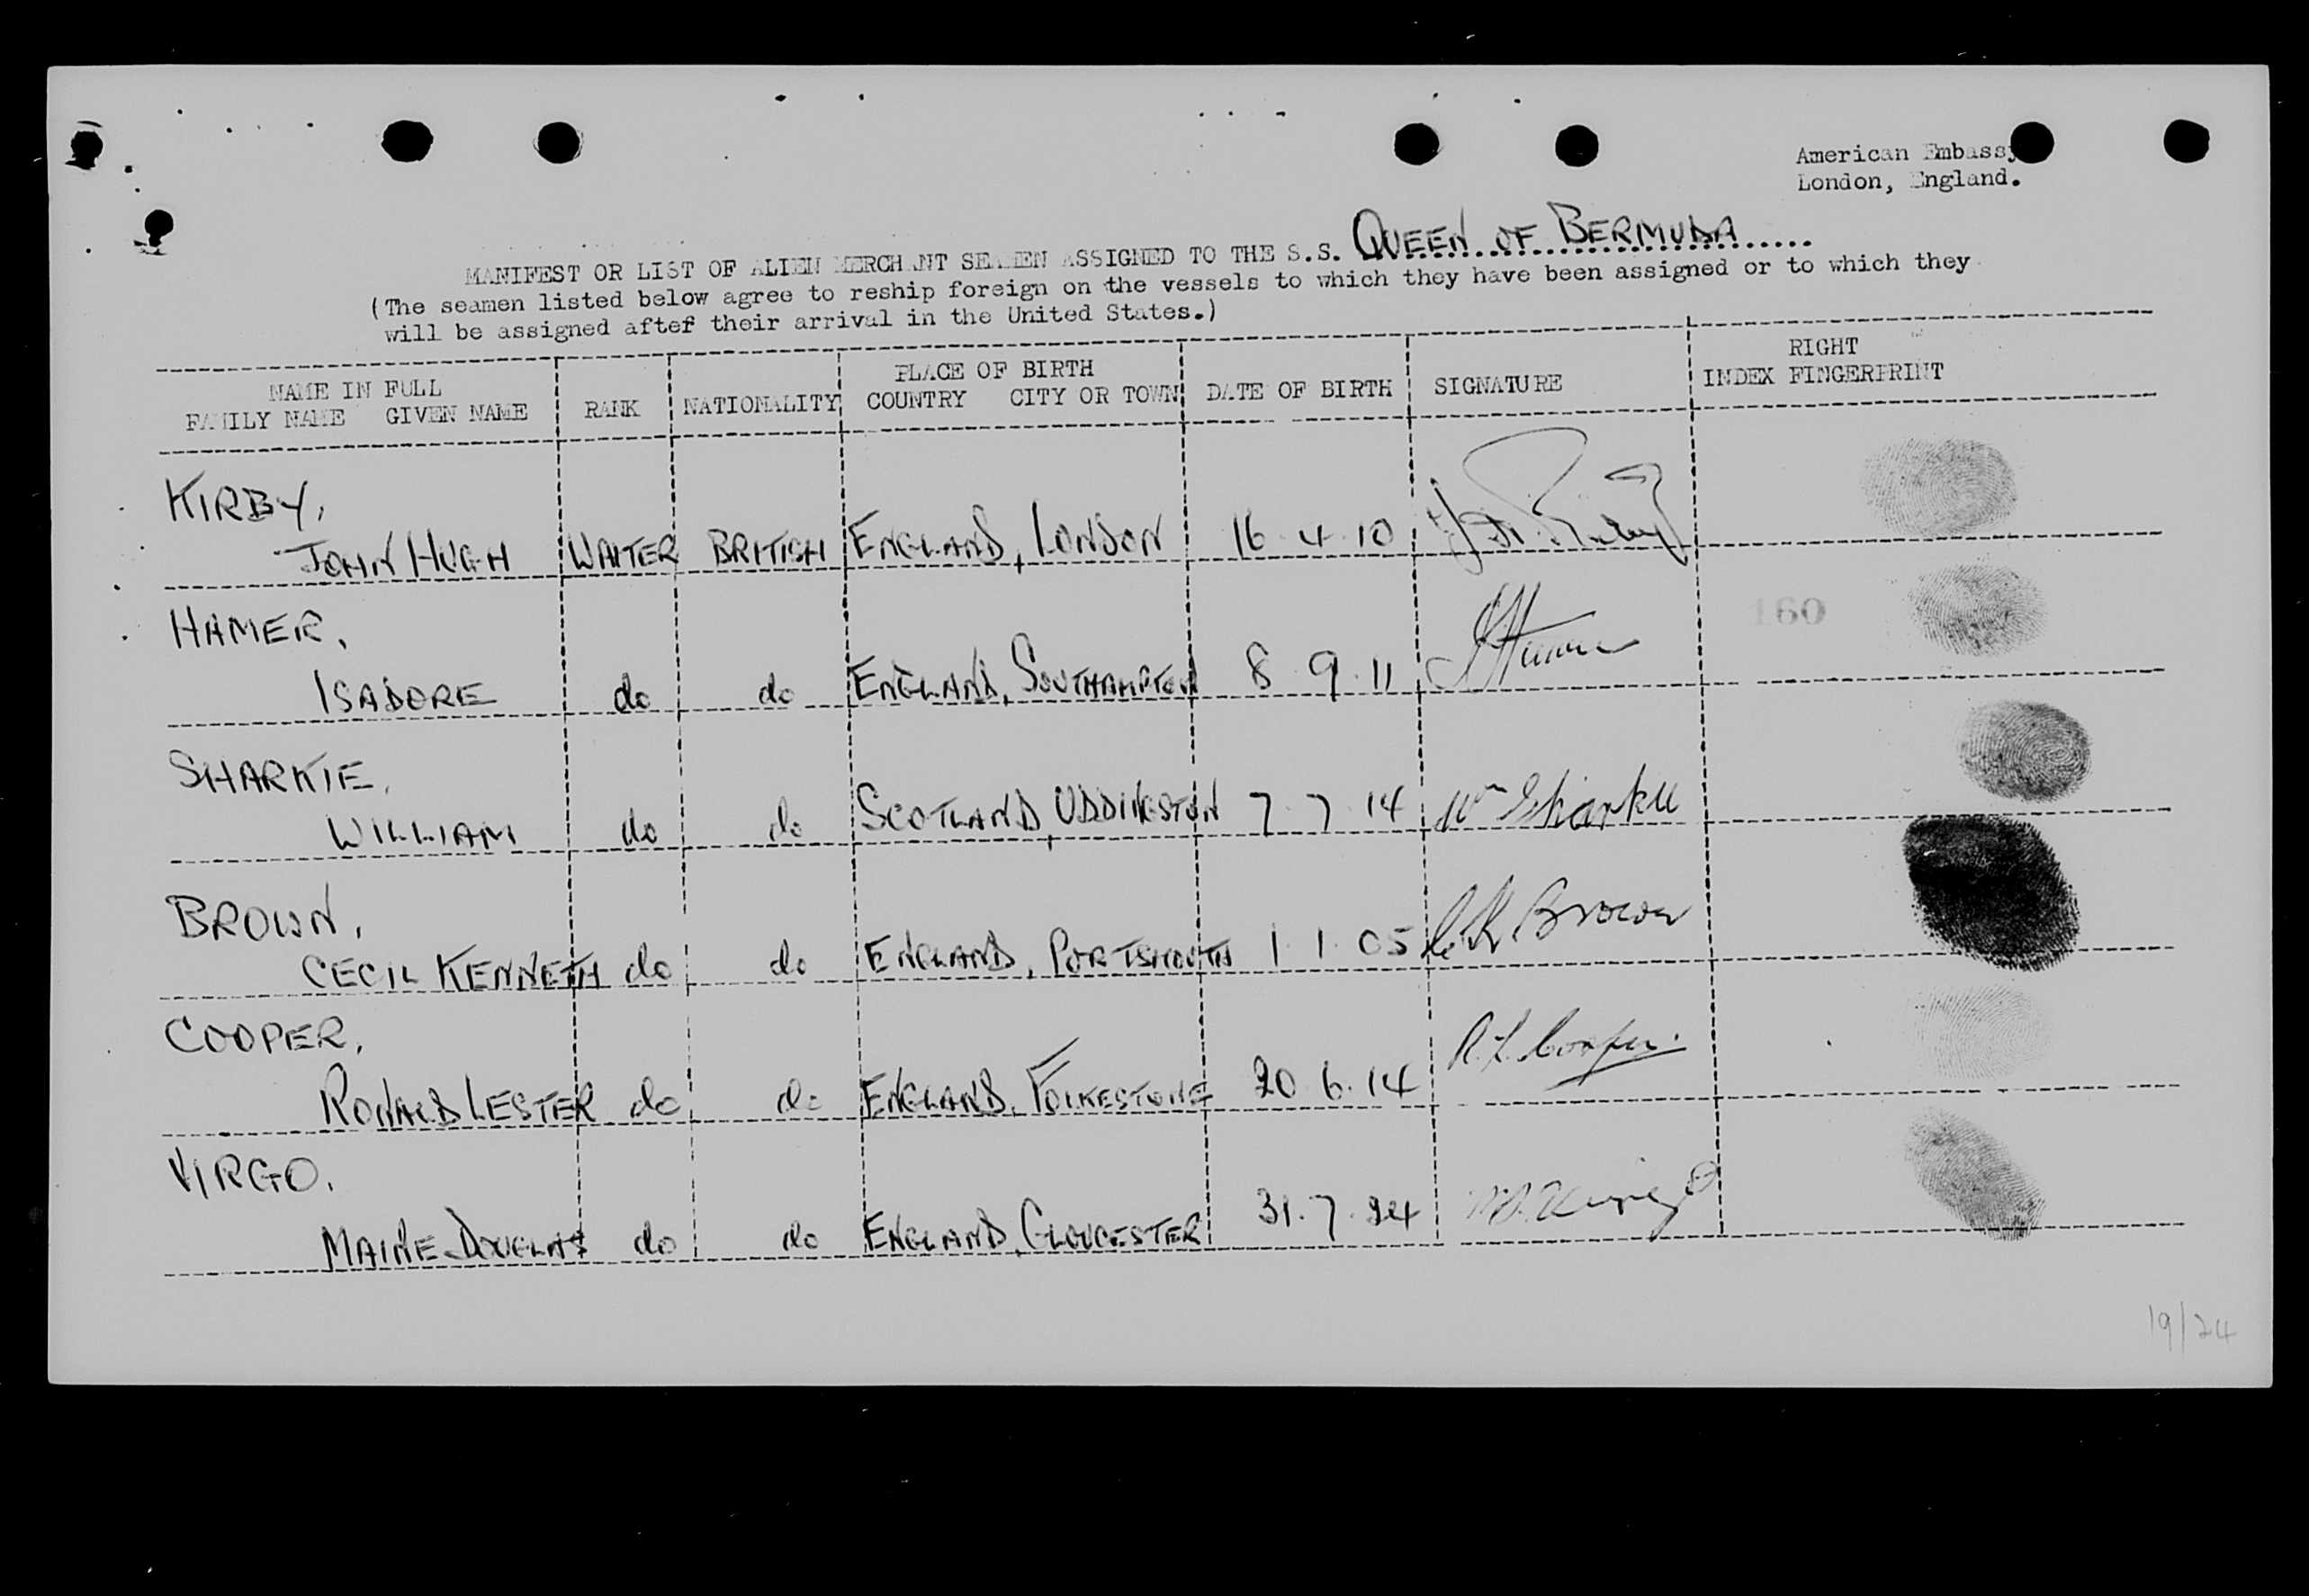 American Embassy
London, England.
MANIFEST OR LIST OF ALIEN MERCHANT SEAMEN ASSIGNED TO THE S.S. QUEEN OF BERMUDA
(The seamen listed below agree to reship foreign on the vessels to which they have been assigned or to which they
will be assigned after their arrival in the United States.)
NAME IN FULL PLACE OF BIRTH RIGHT
FAMILY NAME GIVEN NAME RANK NATIONALITY COUNTRY CITY OR TOWN DATE OF BIRTH SIGNATURE INDEX FINGERPRINT
KIRBY,
JOHN HUGH WAITER BRITISH ENGLAND, LONDON 16 . 4 . 10
HAMER,
160
ISADORE do do ENGLAND, SOUTHAMPTON 8 . 9 . 11
SHARKIE,
WILLIAM do do SCOTLAND, UDDINGSTON 7 . 7 . 14 Wm Sharkie
BROWN,
CECIL KENNETH do do ENGLAND, PORTSMOUTH 1 . 1 . 05 C. K. Brown
COOPER,
RONALD LESTER do do ENGLAND, FOLKESTONE 20 . 6 . 14 R. L. Cooper.
VIRGO,
DOUGLAS do do ENGLAND, GLOUCESTER 31 . 7 . 24
19/24